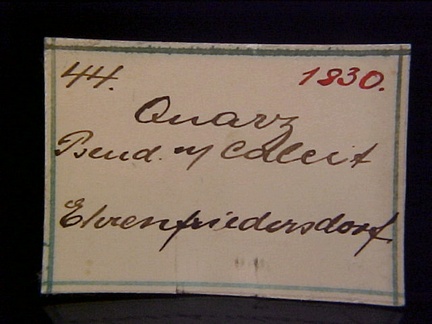 44. 1830.
Quarz
Pseud. n/ Calcit
Ehrenfriedersdorf.